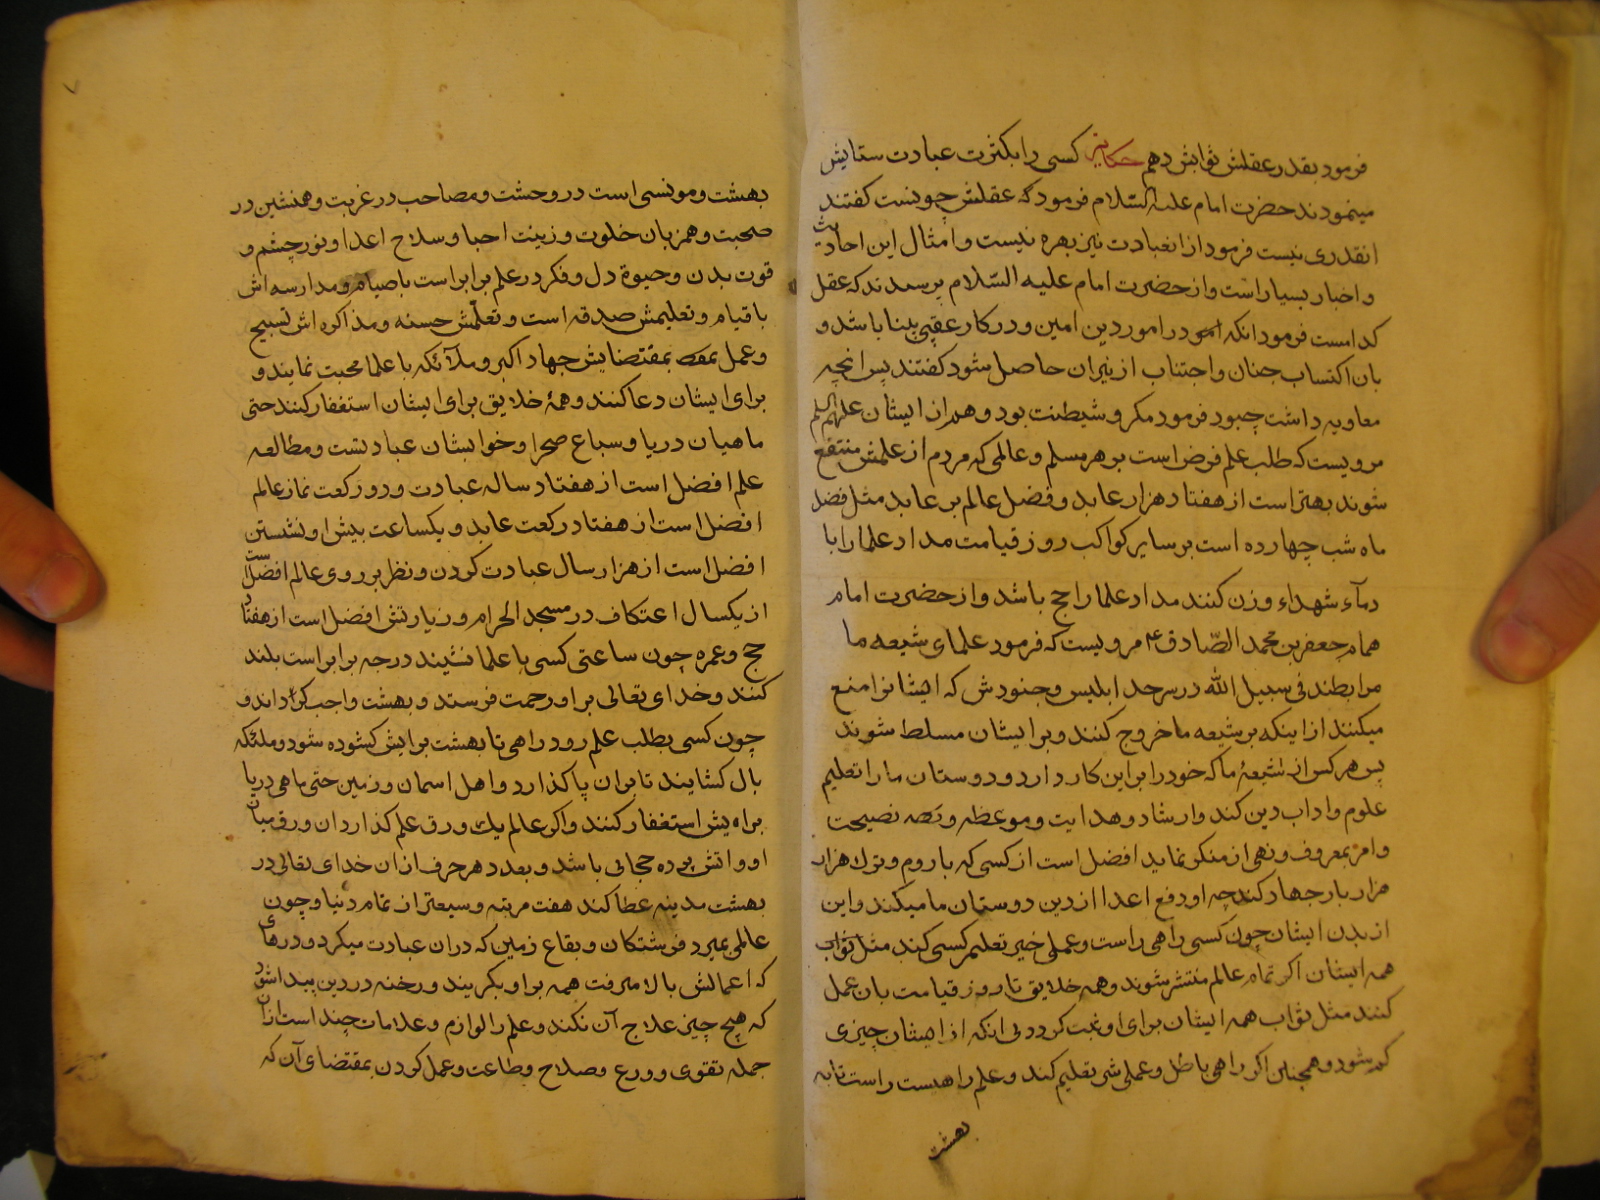 فرمود بقدر عقلش ثوابش دهم حکایة کسی را بکثرت عبادت ستایش
مینمودند حضرت امام علیه السّلام فرمود که عقلش چونست کفتند
انقدری نیست فرمود از انعبادت نیز بهره نیست و امثال این احادیث
و اخبار بسیار است و از حضرت امام علیه السّلام پرسیدند که عقل
کدامست فرمود انکه در امور دین امین و در کار عقبی بینا باشد و
بان اکتساب جنان و اجتناب از نیران حاصل شود کفتند پس انچه
معاویه داشت چبود فرمود مکر و شیطنت بود و هم از ایشان علیهم السلام
مرویست که طلب علم فرض است بر هر مسلم و عالمی که مردم از علمش منتفع
شوند بهتر است از هفتاد هزار عابد و فضل عالم بر عابد مثل فضل
ماه شب چهارده است بر سایر کواکب روز قیامت مداد علما را با
دمآء شهداء وزن کنند مداد علما راجح باشد و از حضرت امام
همام جعفر بن محمد الصّادق ع مرویست که فرمود علمای شیعه ما
مرابطند فی سبیل الله در سرحد ابلیس و جنودش که ایشانرا منع
میکنند از اینکه بر شیعه ما خروج کنند و بر ایشان مسلط شوند
پس هر کس از شیعهٔ ما که خود را براین کار دارد و دوستان ما را تعلیم
علوم و اداب دین کند و ارشاد و هدایت و موعظه و نصیحت
و امر بمعروف و نهی از منکر نماید افضل است از کسی که با روم و ترک هزار
هزار بار جهاد کند چه او دفع اعدا از دین دوستان ما میکند و این
از بدن ایشان چون کسی راهی راست و عملی خیر تعلیم کسی کند مثل ثواب
همه ایشان اکر تمام عالم منتشر شوند و همه خلایق تا روز قیامت بان عمل
کنند مثل ثواب همه ایشان برای او ثبت کردد بی انکه از ایشان چیزی
کم شود و همچنین اکر راهی باطل و عملی شر تعلیم کند و علم راهیست راست تا به
بهشت
بهشت و مونسی است در وحشت و مصاحب در غربت و همنشین در
صحبت و همزبان خلوت و زینت احبا و سلاح اعدا و نور چشم و
قوت بدن و حیوة دل و فکر در علم برابر است با صیام و مدارسه اش
با قیام و تعلیمش صدقه است و تعلّمش حسنه و مذاکره اش تسبیح
و عمل بمقتضایش جهاد اکبر و ملآئکه با علما محبت نمایند و
برای ایشان دعا کنند و همهٔ خلایق برای ایشان استغفار کنند حتی
ماهیان دریا و سباع صحرا و خواب ایشان عبادتست و مطالعه
علم افضل است از هفتاد ساله عبادت و دو رکعت نماز عالم
افضل است از هفتاد رکعت عابد و یکساعت پیش او نشستن
افضل است از هزار سال عبادت کردن و نظر بر روی عالم افضل است
از یکسال اعتکاف در مسجد الحرام و زیارتش افضل است از هفتاد
حج و عمره چون ساعتی کسی با علما نشیند درجه برابر است بلند
کنند و خدای تعالی بر او رحمت فرستد و بهشت واجب کرداند و
چون کسی بطلب علم رود راهی تا بهشت برایش کشوده شود و ملئکه
بال کشایند تا بران پا کذارد و اهل اسمان و زمین حتی ماهی دریا
برایش استغفار کنند و اکر عالم یک ورق علم کذارد ان ورق میان
او و اتش پرده حجابی باشد و بعدد هر حرف ازان خدای تعالی در
بهشت مدینه عطا کند هفت مرتبه وسیعتر از تمام دنیا و چون
عالمی بمیرد فرشتکان و بقاع زمین که دران عبادت میکرد و درهای
که اعمالش بالا میرفت همه بر او بکریند و رخنه در دین پیدا شود
که هیچ چیز علاج آن نکند و علم را لوازم و علامات چند است ازان
جمله تقوی و ورع و صلاح و طاعت و عمل کردن بمقتضای آن که